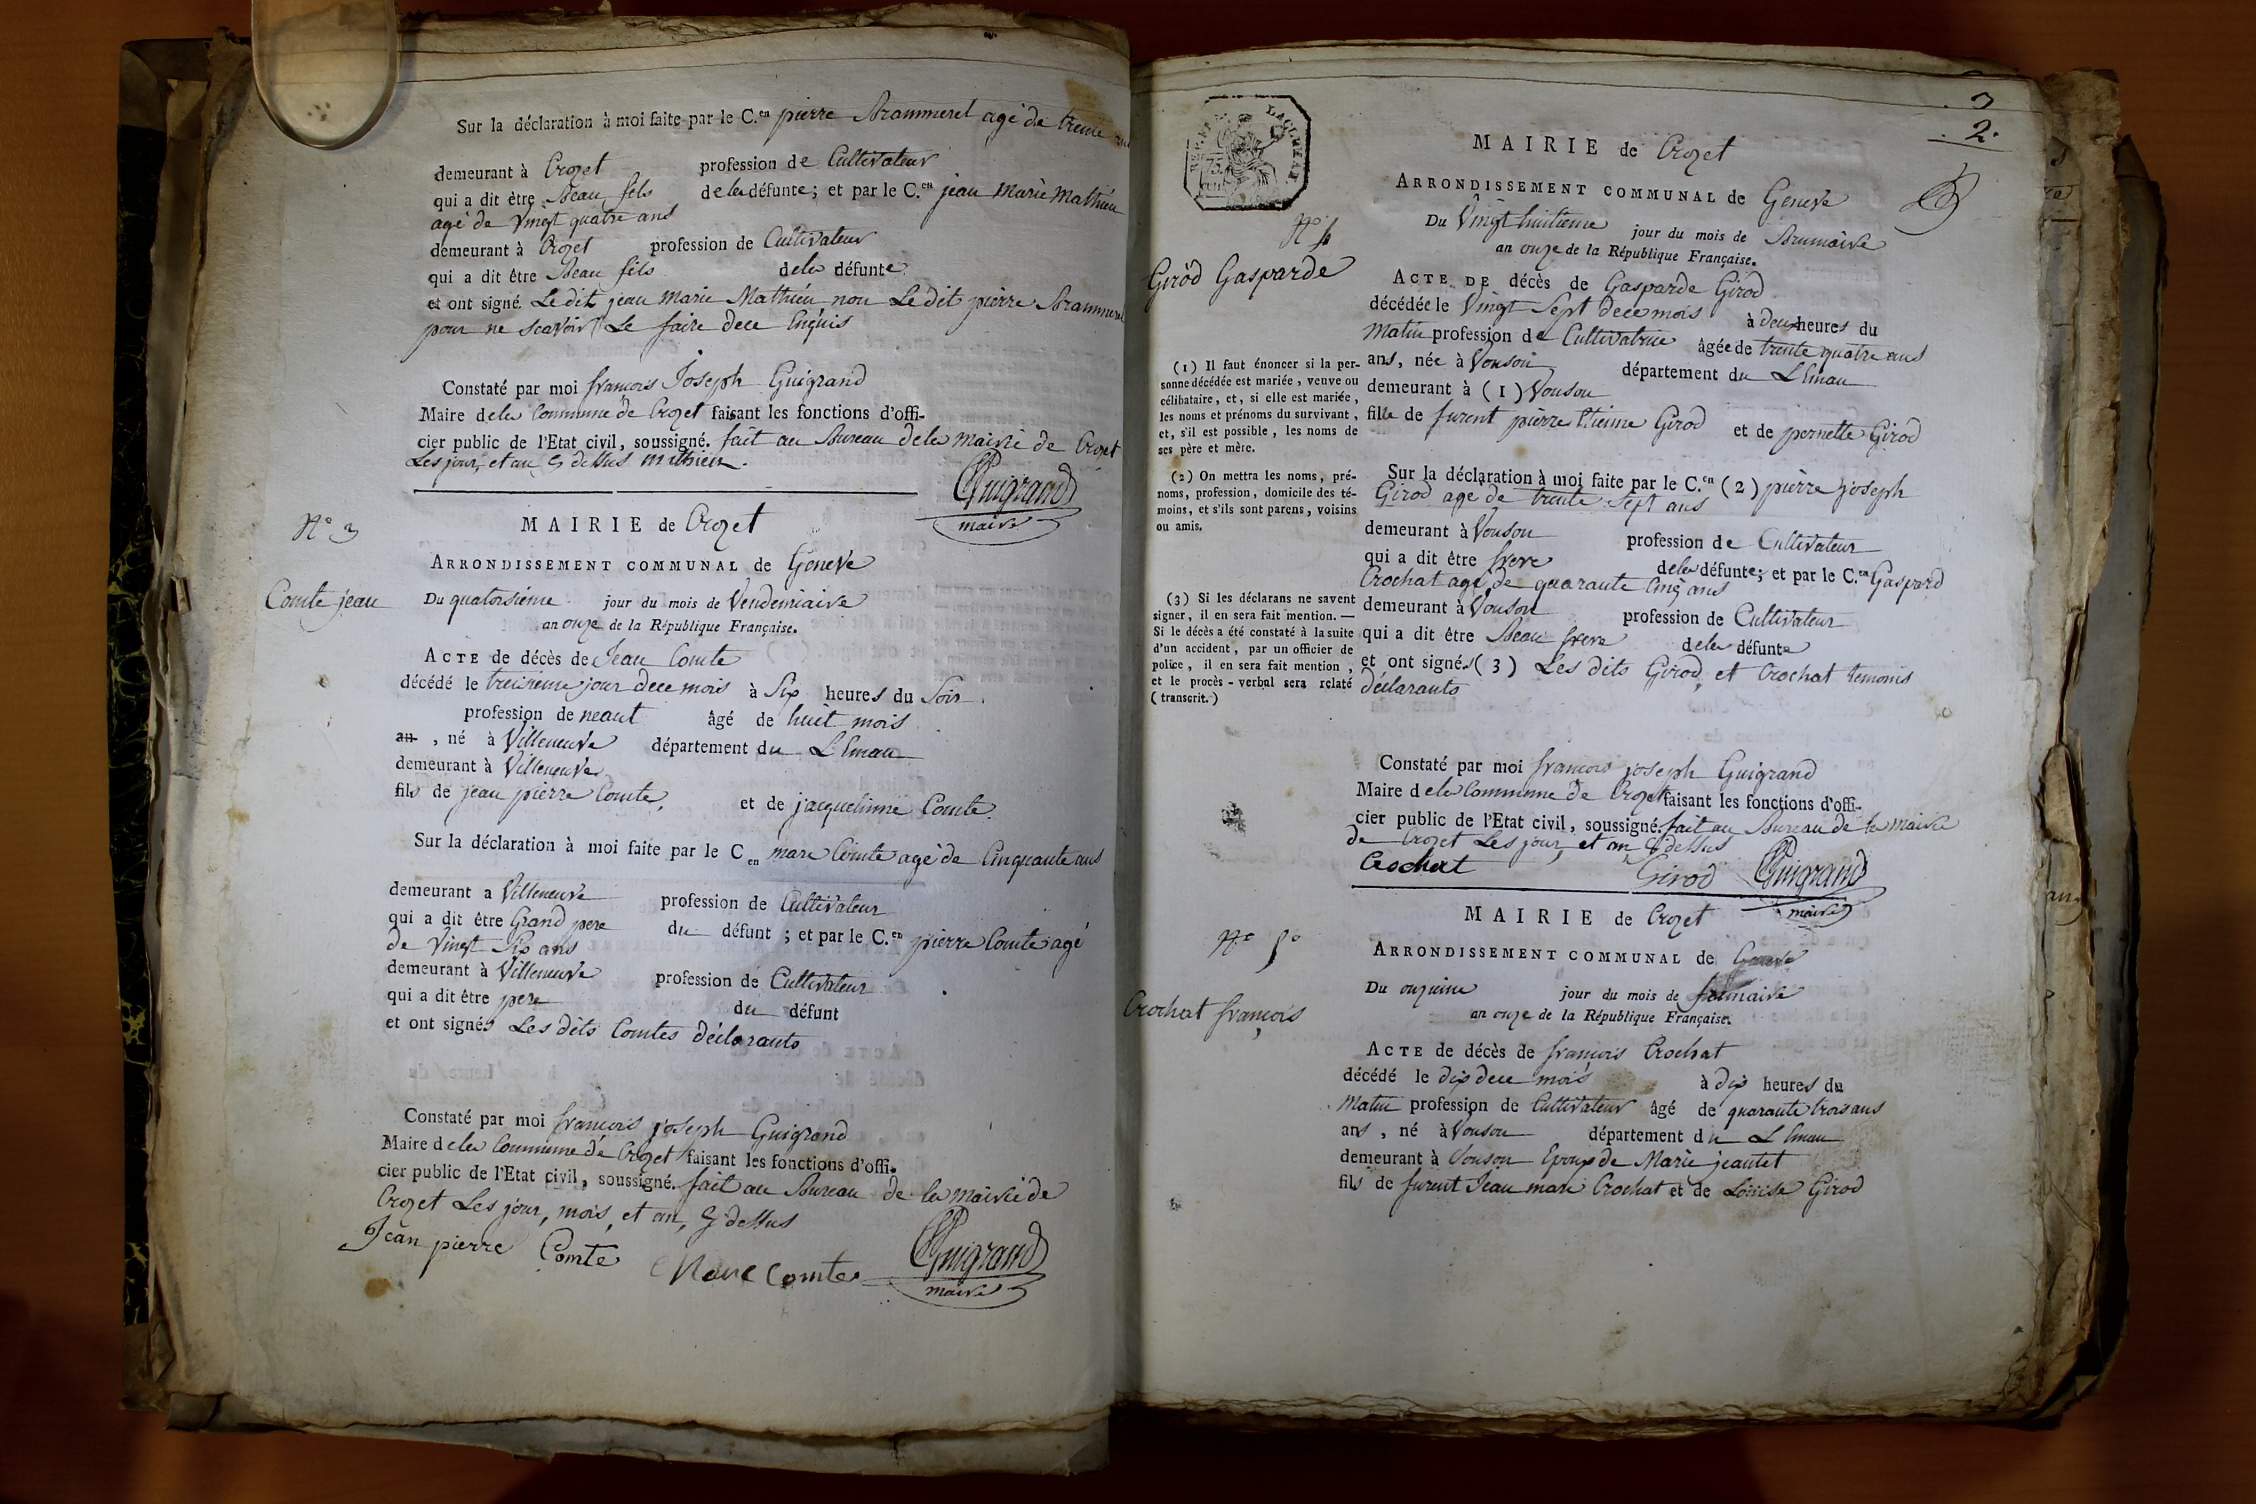 Sur la déclaration à moi faite par le C.en pierre Brammerel agé de trente
demeurant à Crozet profession de Cultivateur
qui a dit être Beau fils dela défunte; et par le C.en jean Marie Mathieu
agé de Vingt quatre ans
demeurant à Crozet profession de Cultivateur
qui a dit être Beau fils dela défunte
et ont signé. Le dit jean Marie Mathieu non Le dit pierre Brammerel
pour ne scavoir Le faire dece Enquis
Constaté par moi françois Joseph Guigrand
Maire dela Commune de Crozet faisant les fonctions d'offi-
cier public de l'Etat civil, soussigné. fait au Bureau dela mairie de Crozet
Les jour, et an Cy dessus mathieu.
Guigrand
maire
N° 3
MAIRIE de Crozet
ARRONDISSEMENT COMMUNAL de Genève
Comte jean
Du quatorsieme jour du mois de Vendemiaire
an onze de la République Française.
ACTE de décès de Jean Comte
décédé le treisieme jour dece mois à Six heures du Soir.
profession de neant âgé de huit mois
an , né à Villeneuve département du L'Eman
demeurant à Villeneuve
fils de jean pierre Comte, et de jacquelinne Comte.
Sur la déclaration à moi faite par le C en marc Comte agé de Cinquante ans
demeurant a Villeneuve profession de Cultivateur
qui a dit être Grand pere du défunt ; et par le C.en pierre Comte agé
de Vingt Six ans
demeurant à Villeneuve profession de Cultivateur
qui a dit être pere du défunt
et ont signés Les dits Comtes déclarants
Constaté par moi françois joseph Guigrand
Maire dela Commune de Crozet faisant les fonctions d'offi-
cier public de l'Etat civil, soussigné. fait au Bureau de la mairie de
Crozet Les jour, mois, et an, Cy dessus
Jean pierre Comte Marc Comte Guigrand
maire
2
MAIRIE de Crozet
ARRONDISSEMENT COMMUNAL de Geneve
N° 4
Du Vingt huitieme jour du mois de Brumaire
an onze de la République Française.
Girod Gasparde
ACTE DE décès de Gasparde Girod
décédée le Vingt Sept dece mois à deux heures du
Matin profession de Cultivatrice âgée de trente quatre ans
ans, née à Vouson département du L'Eman
demeurant à (1) Vouson
fille de furent pierre Etienne Girod et de pernette Girod
(1) Il faut énoncer si la per-
sonne décédée est mariée, veuve ou
célibataire, et, si elle est mariée,
les noms et prénoms du survivant,
et, s'il est possible, les noms de
ses père et mère.
(2) On mettra les noms, pré-
noms, profession, domicile des té-
moins, et s'ils sont parens, voisins
ou amis.
(3) Si les déclarans ne savent
signer, il en sera fait mention. —
Si le décès a été constaté à la suite
d'un accident, par un officier de
police, il en sera fait mention,
et le procès-verbal sera relaté
(transcrit.)
Sur la déclaration à moi faite par le C.en (2) pierre joseph
Girod age de trente Sept ans
demeurant à Vouson profession de Cultivateur
qui a dit être frere dela défunte; et par le C.en Gaspard
Crochat agé de quarante Cinq ans
demeurant à Vouson profession de Cultivateur
qui a dit être Beau frere dela défunte
et ont signés (3) Les dits Girod, et Crochat temoins
déclarants
Constaté par moi françois joseph Guigrand
Maire dela Commune de Crozet faisant les fonctions d'offi-
cier public de l'Etat civil, soussigné. fait au Bureau de la mairie
de Crozet Les jour, et an Cy dessus
Crochat Girod Guigrand
maire
MAIRIE de Crozet
N° 5°
ARRONDISSEMENT COMMUNAL de Geneve
Du onzieme jour du mois de frimaire
an onze de la République Française.
Crochat françois
ACTE de décès de françois Crochat
décédé le dix dece mois à dix heures du
Matin profession de Cultivateur âgé de quarante trois ans
ans , né à Vouson département du L'Eman
demeurant à Vouson Epoux de Marie jeantet
fils de furent Jean marc Crochat et de Louise Girod